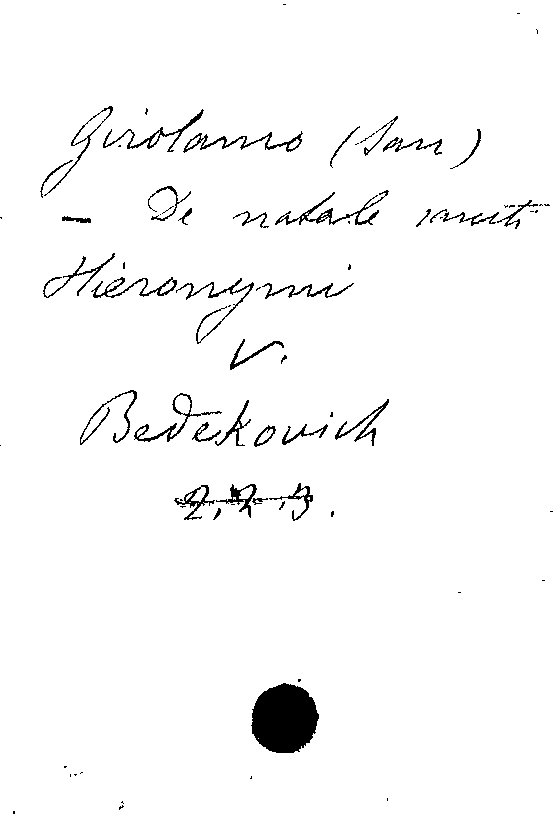 Girolamo (San)
— De natale sancti
Hieronymi
V.
Bedekovich
2.2.3.